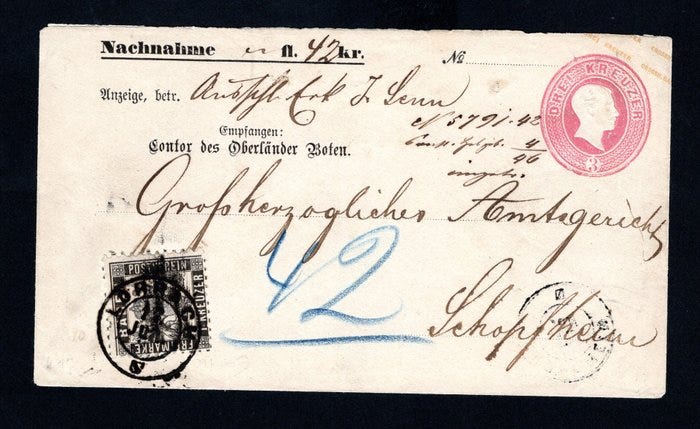 Nachnahme fl. 42 kr.
№
Anzeige, betr. J. Senn
DREI KREUZER
3
Empfangen:
Contor des Oberländer Boten.
N 5791. 42
4
46
Großherzogliches Amtsgericht
42
Schopfheim
POSTVEREIN
FREIMARKE
KREUZER
LÖRRACH